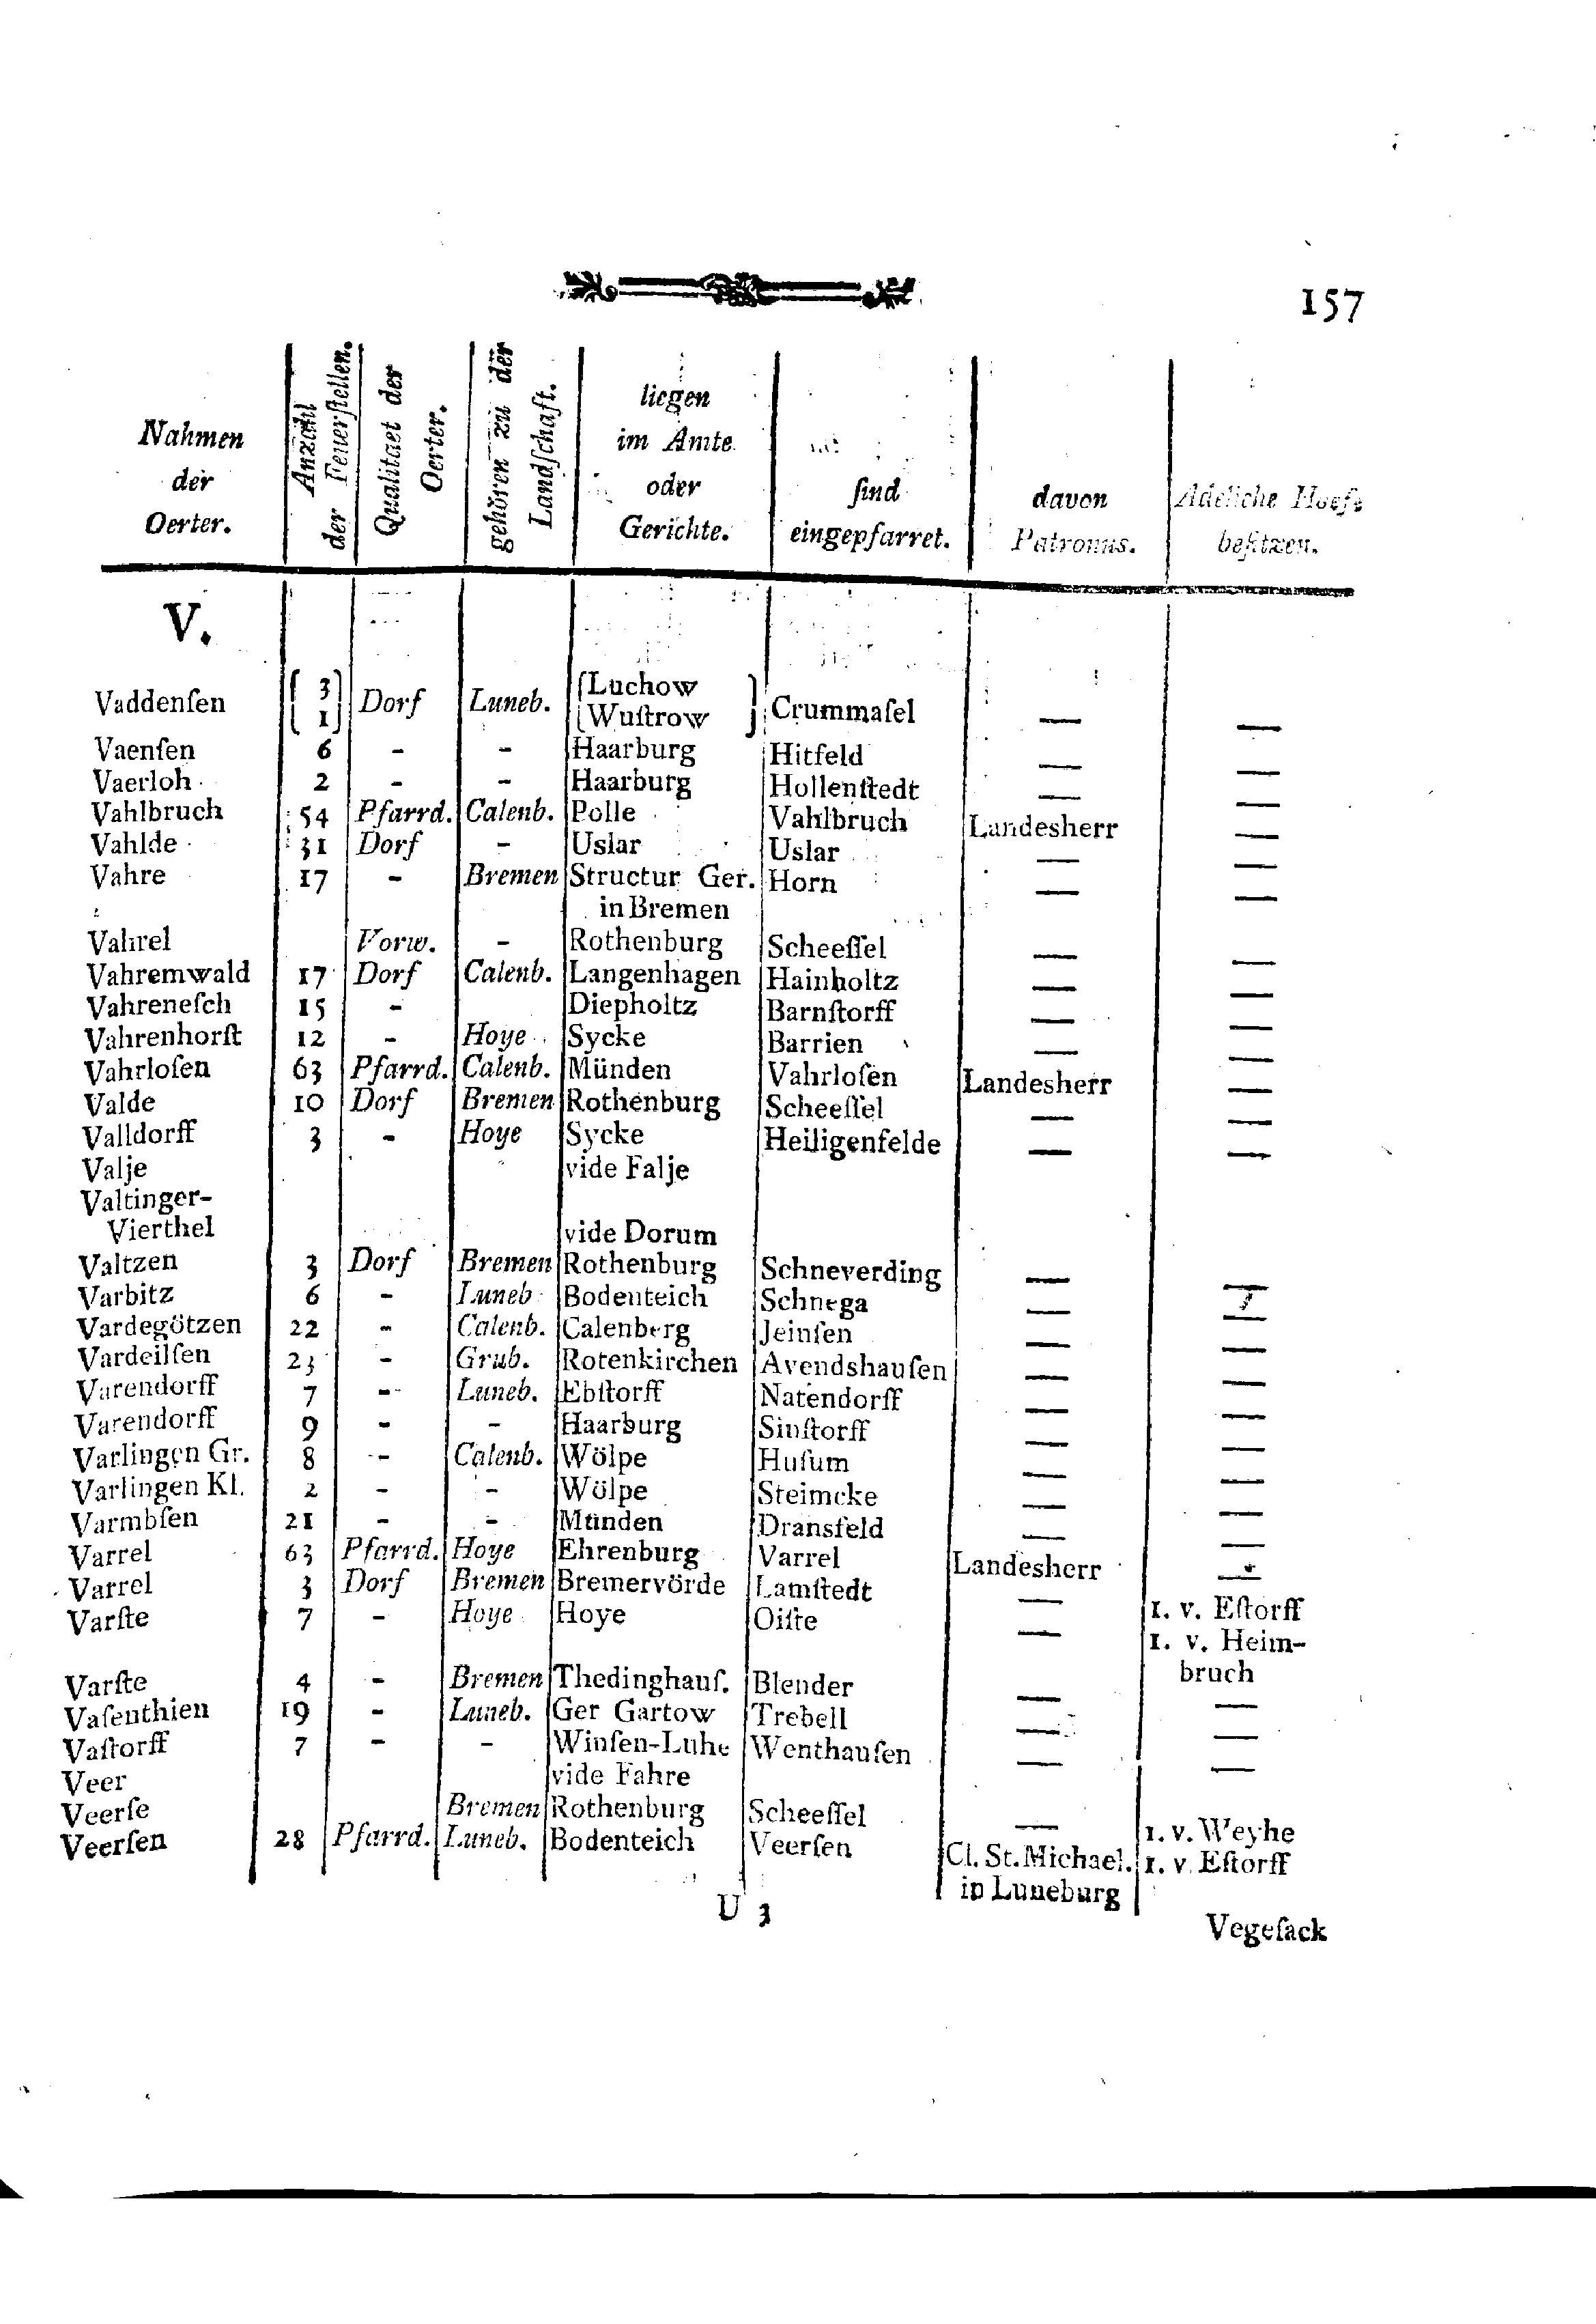 157
Nahmen der Oerter. | Anzahl der Feuerſtellen. | Qualitaet der Oerter. | gehören zu der Landſchaft. | liegen im Amte oder Gerichte. | ſind eingepfarret. | davon Patronus. | Adeliche Hoefe beſitzen.
V.
Vaddenſen | 3 1 | Dorf | Luneb. | Luchow Wuſtrow | Crummaſel | — | —
Vaenſen | 6 | - | - | Haarburg | Hitfeld | — | —
Vaerloh | 2 | - | - | Haarburg | Hollenſtedt | — | —
Vahlbruch | 54 | Pfarrd. | Calenb. | Polle | Vahlbruch | Landesherr | —
Vahlde | 31 | Dorf | - | Uslar | Uslar | — | —
Vahre | 17 | - | Bremen | Structur Ger. | Horn | — | —
in Bremen
Vahrel | Vorw. | - | Rothenburg | Scheeſſel | — | —
Vahremwald | 17 | Dorf | Calenb. | Langenhagen | Hainholtz | — | —
Vahreneſch | 15 | - | Diepholtz | Barnſtorff | — | —
Vahrenhorſt | 12 | - | Hoye | Sycke | Barrien | — | —
Vahrloſen | 63 | Pfarrd. | Calenb. | Münden | Vahrloſen | Landesherr | —
Valde | 10 | Dorf | Bremen | Rothenburg | Scheeſſel | — | —
Valldorff | 3 | - | Hoye | Sycke | Heiligenfelde | — | —
Valje | vide Falje
Valtinger-
Vierthel | vide Dorum
Valtzen | 3 | Dorf | Bremen | Rothenburg | Schneverding | — | —
Varbitz | 6 | - | Luneb | Bodenteich | Schnega | — | —
Vardegötzen | 22 | - | Calenb. | Calenberg | Jeinſen | — | —
Vardeilſen | 23 | - | Grub. | Rotenkirchen | Avendshauſen | — | —
Varendorff | 7 | - | Luneb. | Ebſtorff | Natendorff | — | —
Varendorff | 9 | - | - | Haarburg | Sinſtorff | — | —
Varlingen Gr. | 8 | - | Calenb. | Wölpe | Huſum | — | —
Varlingen Kl. | 2 | - | - | Wölpe | Steimcke | — | —
Varmbſen | 21 | - | - | Münden | Dransfeld | — | —
Varrel | 63 | Pfarrd. | Hoye | Ehrenburg | Varrel | Landesherr | —
Varrel | 3 | Dorf | Bremen | Bremervörde | Lamſtedt | — | 1. v. Eſtorff
Varſte | 7 | - | Hoye | Hoye | Oiſte | — | 1. v. Heim-
bruch
Varſte | 4 | - | Bremen | Thedinghauſ. | Blender | — | —
Vaſenthien | 19 | - | Luneb. | Ger Gartow | Trebell | — | —
Vaſtorff | 7 | - | - | Winſen-Luhe | Wenthauſen | — | —
Veer | vide Fahre
Veerſe | Bremen | Rothenburg | Scheeſſel | — | 1. v. Weyhe
Veerſen | 28 | Pfarrd. | Luneb. | Bodenteich | Veerſen | Cl. St. Michael. | 1. v. Eſtorff
in Luneburg
U 3
Vegeſack